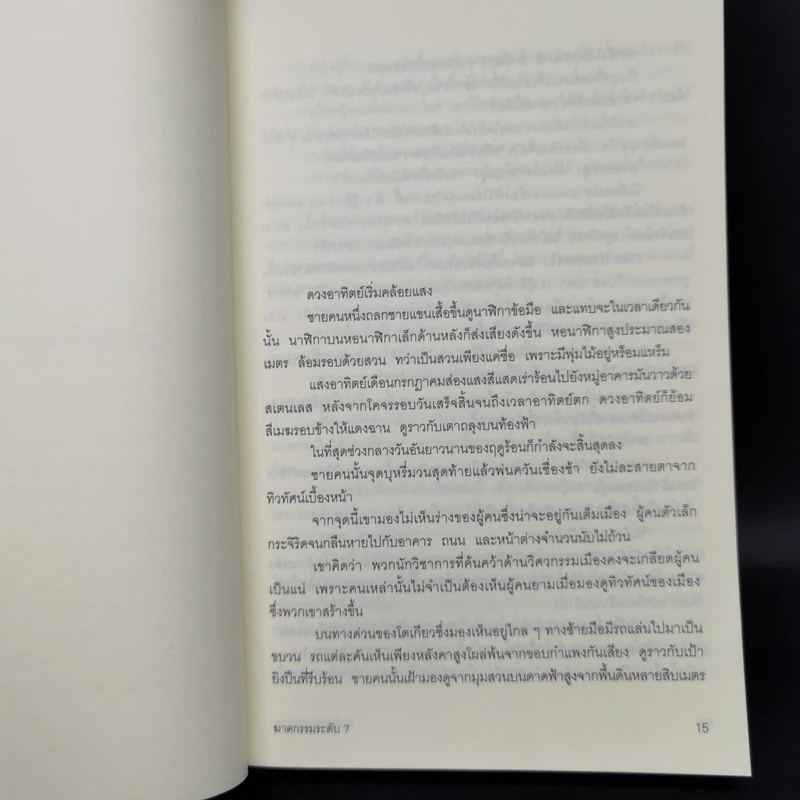 ดวงอาทิตย์เริ่มคล้อยแสง
ชายคนหนึ่งถลกชายแขนเสื้อขึ้นดูนาฬิกาข้อมือ และแทบจะในเวลาเดียวกัน
นั้น นาฬิกาบนหอนาฬิกาเล็กด้านหลังก็ส่งเสียงดังขึ้น หอนาฬิกาสูงประมาณสอง
เมตร ล้อมรอบด้วยสวน ทว่าเป็นสวนเพียงแค่ชื่อ เพราะมีพุ่มไม้อยู่หร็อมแหร็ม
แสงอาทิตย์เดือนกรกฎาคมส่องแสงสีแสดเร่าร้อนไปยังหมู่อาคารมันวาวด้วย
สเตนเลส หลังจากโคจรรอบวันเสร็จสิ้นจนถึงเวลาอาทิตย์ตก ดวงอาทิตย์ก็ย้อม
สีเมฆรอบข้างให้แดงฉาน ดูราวกับเตาถลุงบนท้องฟ้า
ในที่สุดช่วงกลางวันอันยาวนานของฤดูร้อนก็กำลังจะสิ้นสุดลง
ชายคนนั้นจุดบุหรี่มวนสุดท้ายแล้วพ่นควันเชื่องช้า ยังไม่ละสายตาจาก
ทิวทัศน์เบื้องหน้า
จากจุดนี้เขามองไม่เห็นร่างของผู้คนซึ่งน่าจะอยู่กันเต็มเมือง ผู้คนตัวเล็ก
กระจิริดจนกลืนหายไปกับอาคาร ถนน และหน้าต่างจำนวนนับไม่ถ้วน
เขาคิดว่า พวกนักวิชาการที่ค้นคว้าด้านวิศวกรรมเมืองคงจะเกลียดผู้คน
เป็นแน่ เพราะคนเหล่านั้นไม่จำเป็นต้องเห็นผู้คนยามเมื่อมองดูทิวทัศน์ของเมือง
ซึ่งพวกเขาสร้างขึ้น
บนทางด่วนของโตเกียวซึ่งมองเห็นอยู่ไกล ๆ ทางซ้ายมือมีรถแล่นไปมาเป็น
ขบวน รถแต่ละคันเห็นเพียงหลังคาสูงโผล่พ้นจากขอบกำแพงกันเสียง ดูราวกับเป้า
ยิงปืนที่รีบร้อน ชายคนนั้นเฝ้ามองดูจากมุมสวนบนดาดฟ้าสูงจากพื้นดินหลายสิบเมตร
ฆาตกรรมระดับ 7
15